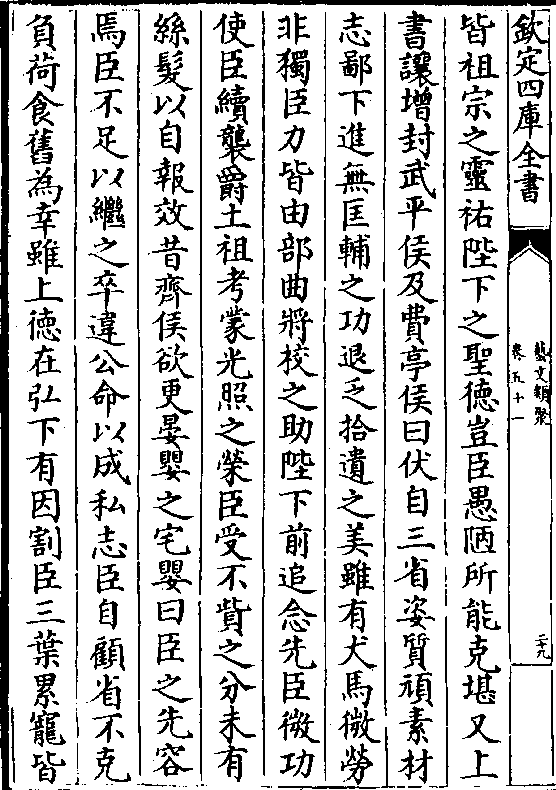 欽定四庫全書
藝文類聚
卷五十一
二十九
皆祖宗之靈祐陛下之聖德豈臣愚陋所能克堪又上
書讓增封武平侯及費亭侯曰伏自三省姿質頑素材
志鄙下進無匡輔之功退乏拾遺之美雖有犬馬微勞
非獨臣力皆由部曲將校之助陛下前追念先臣微功
使臣續襲爵土祖考蒙光照之榮臣受不貲之分未有
絲髮以自報效昔齊侯欲更晏嬰之宅嬰曰臣之先容
焉臣不足以繼之卒違公命以成私志臣自顧省不克
負荷食舊為幸雖上德在弘下有因割臣三葉累寵皆